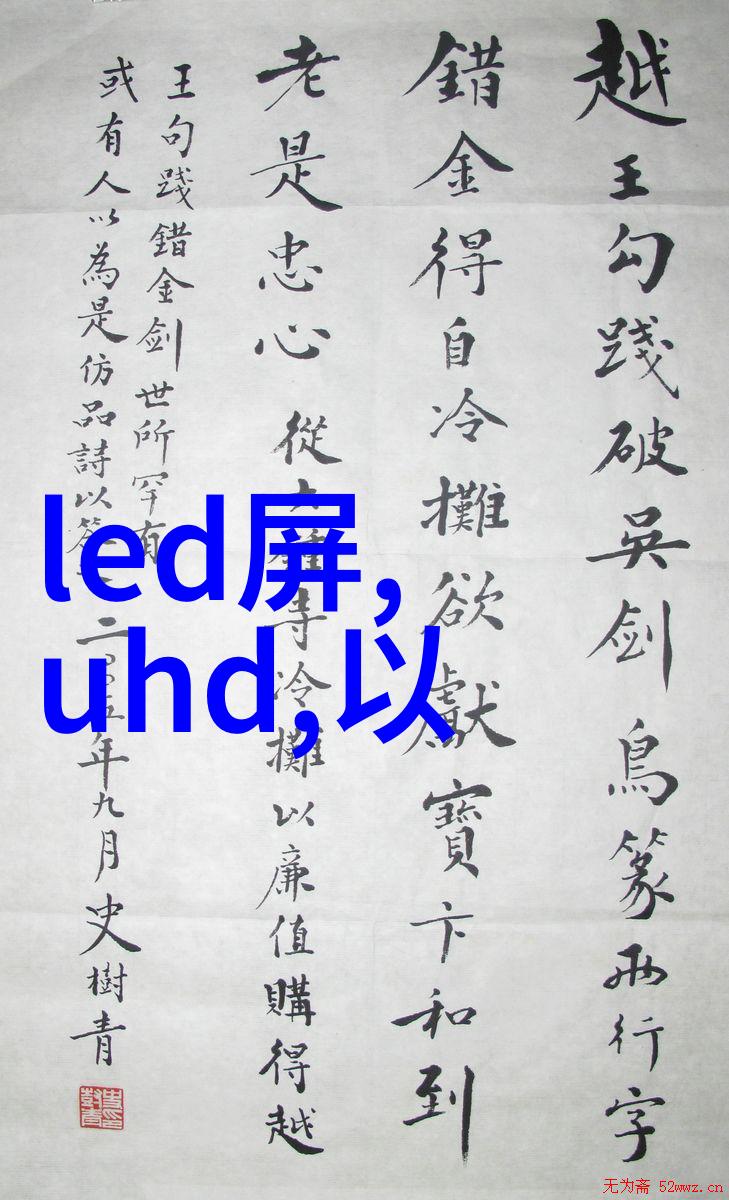 越王勾踐破吳剑鳥篆兩行字
錯金得自冷攤欲獻寶卞和到
老是忠心 從大鐘寺冷攤以廉值購得越
王句踐錯金剑世所罕有
或有人以為是仿品詩以答之二〇〇五年九月史樹青
led屏,
uhd,以
无为斋 52wwz.cn